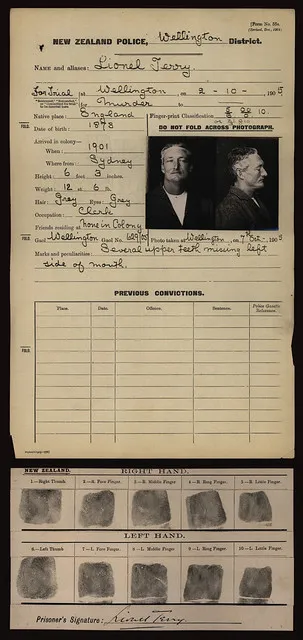 [Form No. 58a.
NEW ZEALAND POLICE, Wellington District.
NAME and aliases: Lionel Terry.
For Trial at Wellington on 2 - 10 - 1905
for Murder to
Native place: England Fingerprint Classification
Date of birth: 1873 DO NOT FOLD ACROSS PHOTOGRAPH.
Arrived in colony—
When: 1901
Where from: Sydney
Height: 6 feet 3 inches.
Weight: 12 st. 6 lb.
Hair: Grey Eyes: Grey
Occupation: Clerk
Friends residing at none in Colony
Gaol Wellington Gaol No. Photo taken at Wellington, on 7th Oct - 1905
Marks and peculiarities: Several upper teeth missing left
side of mouth.
FOLD.
FOLD.
FOLD.
PREVIOUS CONVICTIONS.
Place. Date. Offence. Sentence. Police Gazette Reference.
NEW ZEALAND. RIGHT HAND.
1—Right Thumb 2—R. Fore Finger. 3—R. Middle Finger 4—R Ring Finger 5—R. Little Finger.
LEFT HAND.
6—Left Thumb 7—L. Fore Finger. 8—L. Middle Finger 9—L. Ring Finger 10—L. Little Finger.
Prisoner's Signature: Lionel Terry.